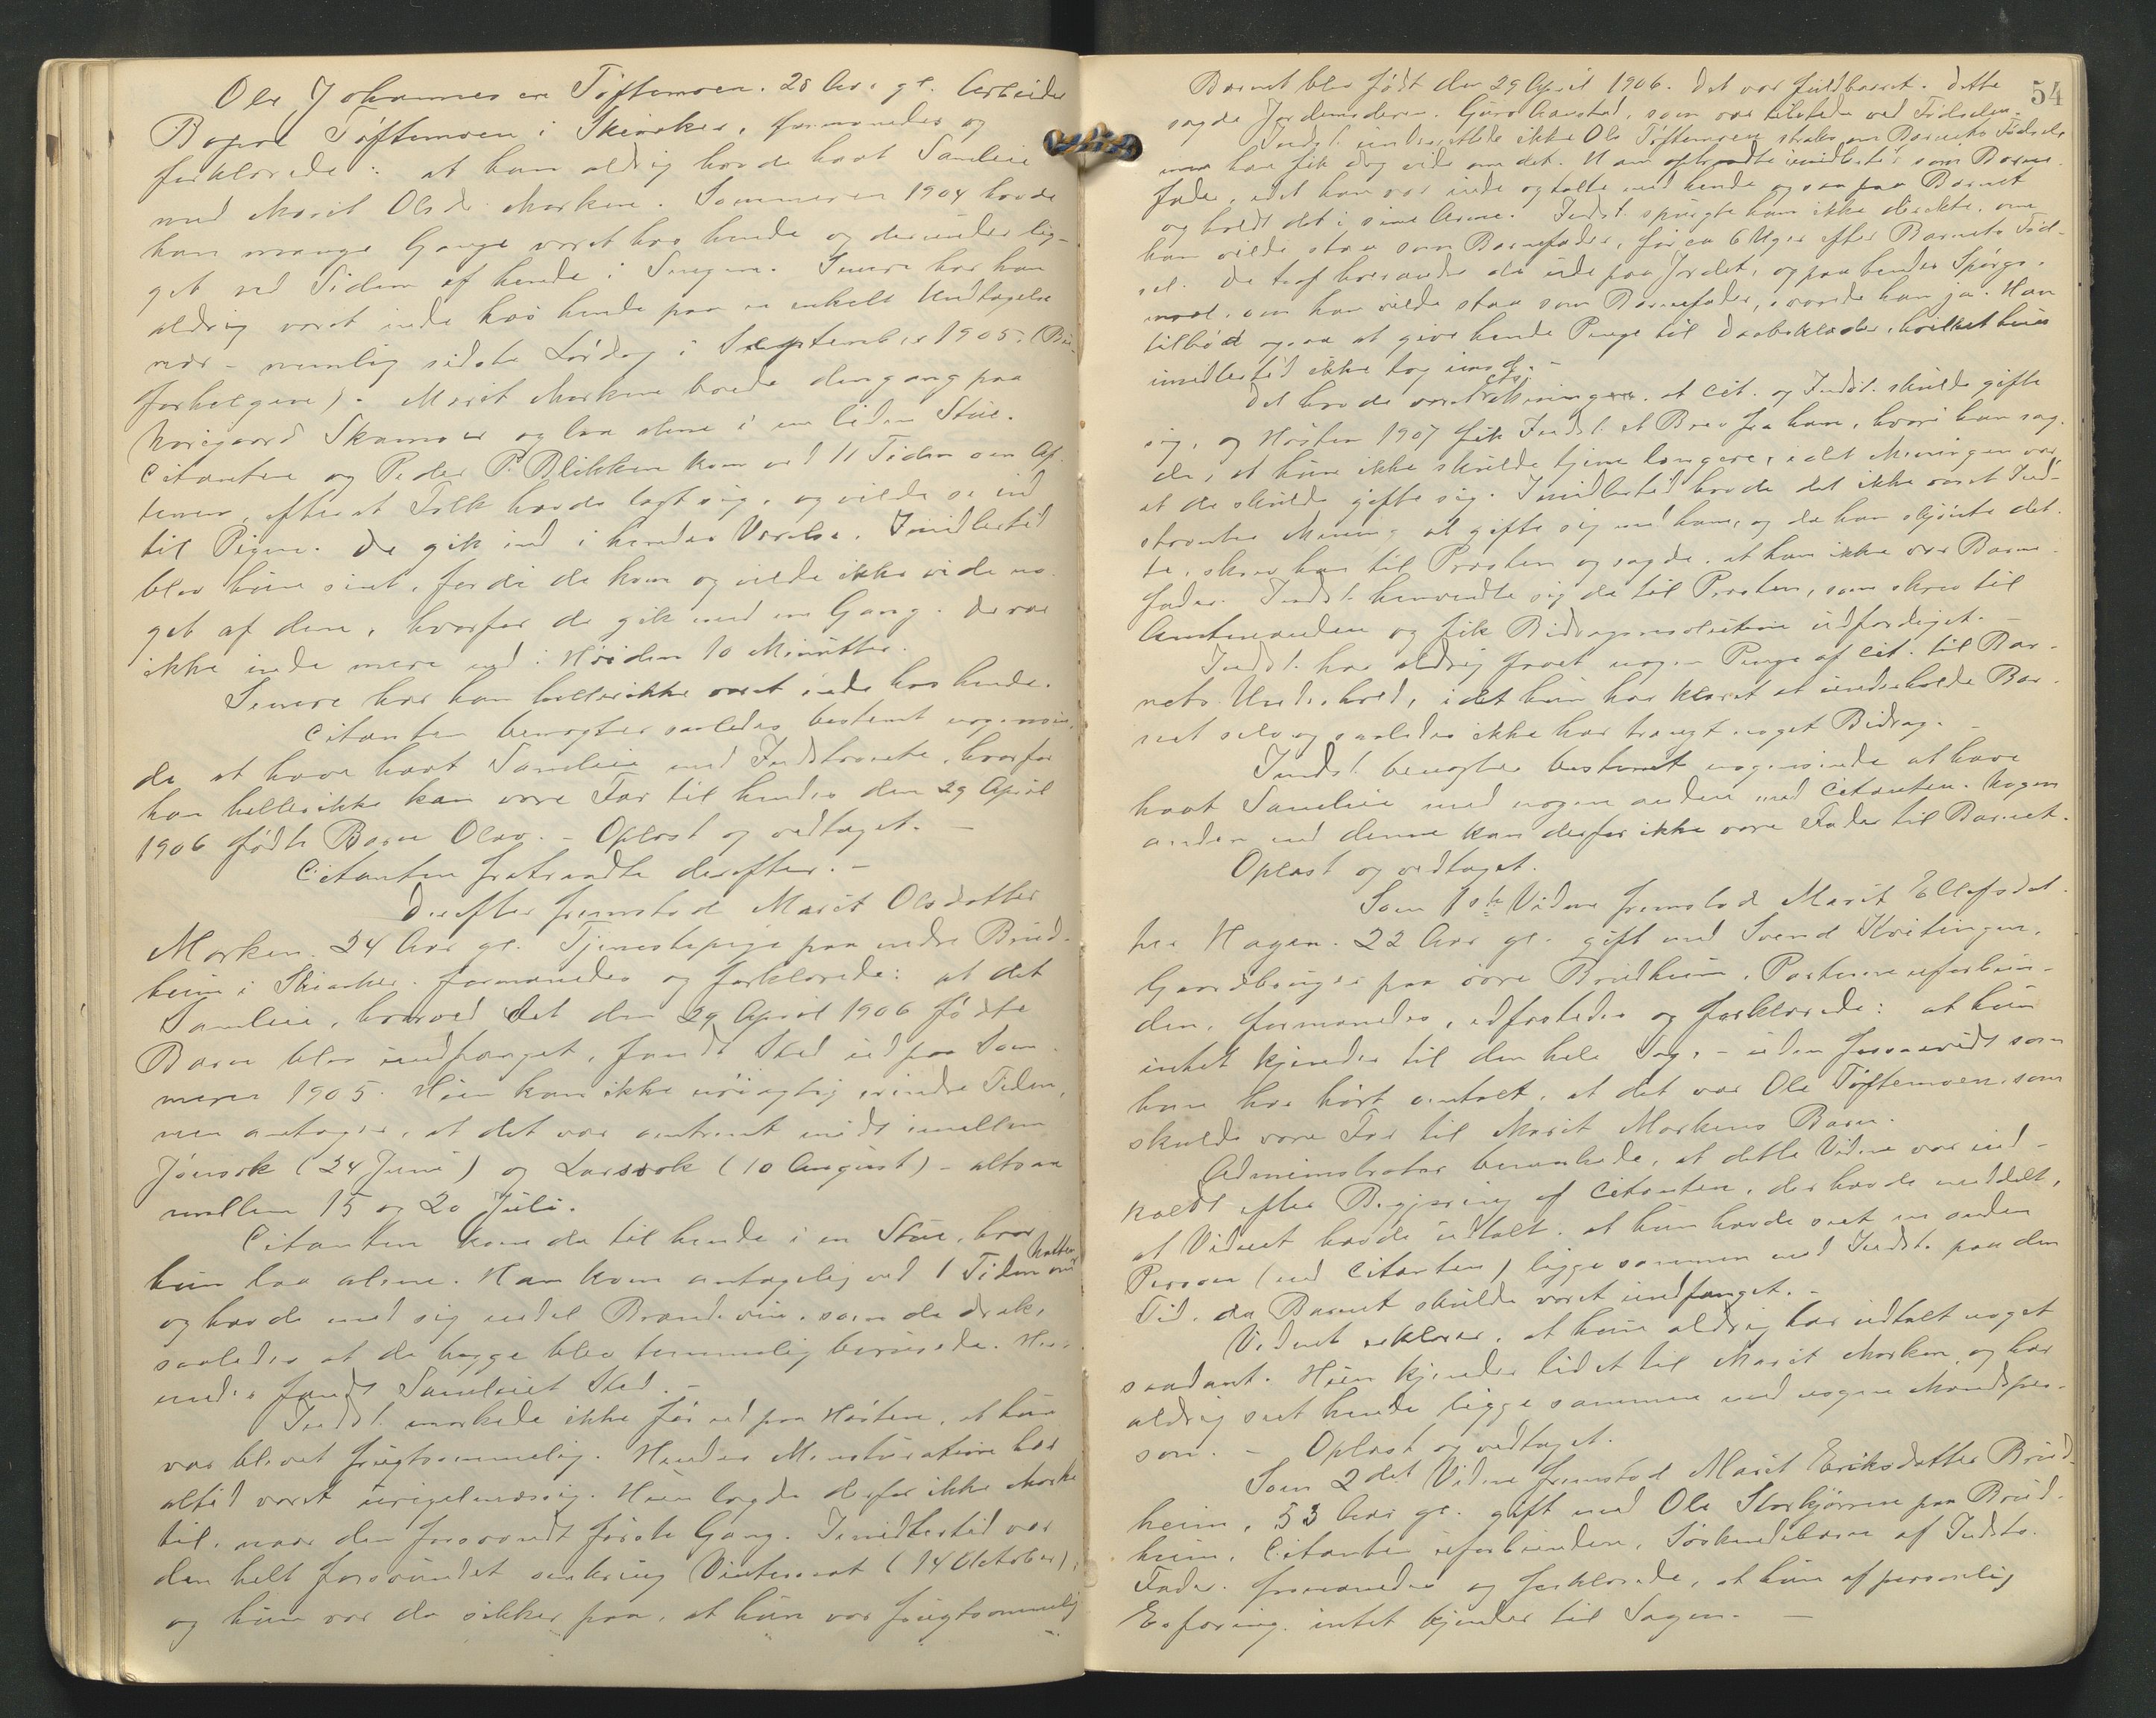 Ole Johannessen Tøftemoen. 28 Aar gl. Arbeider
Bopæl Tøftemoen i Skiaker, formanedes og
forklarede: at han aldrig havde havt Samleie
med Marit Olsdr. Marken. Sommeren 1904 havde
han mange Gange været hos hende og derunder lig-
get ved Siden af hende i Sengen. Senere har han
aldrig været inde hos hende paa en enkelt Undtagelse
nær - nemlig sidste Lørdag i September 1905. (Bu-
forhelgen). Marit Marken boede dengang paa
Norigaard Skamsar og laa alene i en liden Stue.
Citanten og Peder P. Blikken kom ved 11 Tiden om Af-
tenen, efterat Folk havde lagt sig, og vilde se ind
til Pigen. De gik ind i hendes Værelse. Imidlertid
blev hun sint, fordi de kom og vilde ikke vide no-
get af dem, hvorfor de gik med en Gang. De var
ikke inde mere end i Høiden 10 Minutter.
Senere har han hellerikke været inde hos hende.
Citanten benægter saaledes bestemt nogensin-
de at have havt Samleie med Indstævnte, hvorfor
han hellerikke kan være Far til hendes den 29 April
1906 fødte Barn Olav. - Oplæst og vedtaget. -
Citanten fratraadte derefter. -
Derefter fremstod Marit Olsdatter
Marken. 24 Aar gl. Tjenestepige paa nedre Brud-
heim i Skiaker. formanedes og forklarede: at det
Samleie, hvorved det den 29 April 1906 fødte
Barn blev undfanget, fandt Sted ud paa Som-
meren 1905. Hun kan ikke nøiagtig erindre Tiden,
men antager, at det var omtrent midt imellem
Jonsok (24 Juni) og Larsok (10 August) - altsaa
mellem 15 og 20 Juli.
Citanten kom da til hende i en Stue, hvor
hun laa alene. Han kom antagelig ved 1 Tiden om Natten
og havde med sig endel Brændevin, som de drak,
saaledes at de begge blev temmelig berusede. Her-
under fandt Samleiet Sted. -
Indst. mærkede ikke før ud paa Høsten, at hun
var blevet frugtsommelig. Hendes Menstruation har
altid været uregelmæssig. Hun lagde derfor ikke Mærke
til, naar den forsvandt første Gang. Imidlertid var
den helt forsvundet omkring Vinternat (14 October),
og hun var da sikker paa, at hun var frugtsommelig
54
Barnet blev født den 29 April 1906. Det var fuldbaaret. Dette
sagde Jordemoderen. Guro Aanstad, som var tilstede ved Fødselen.
Indst. underrettede ikke Ole Tøftemoen straks om Barnets Fødsel
men han fik dog vide om det. Han optraadte imidlertid som Barne-
fader, idet han var inde og talte med hende og saa paa Barnet
og holdt det i sine Arme. Indst. spurgte ham ikke direkte, om
han vilde staa som Barnefader, før ca 6 Uger efter Barnets Fød-
sel. De traf hverandre da ude paa Jordet, og paa hendes Spørgs-
maal, om han vilde staa som Barnefader, svarede han ja. Han
tilbød ogsaa at give hende Penge til Daabsklæder, hvilket hun
imidlertid ikke tog imod. -
Det havde været Cits. Meningen, at Cit. og Indst. skulde gifte
sig, og Høsten 1907 fik Indst. et Brev fra ham, hvori han sag-
de, at hun ikke skulde tjene længere, idet Meningen var,
at de skulde gifte sig. Imidlertid havde det ikke været Ind-
stævntes Mening at gifte sig med ham, og da han skjønte det-
te, skrev han til Presten og sagde, at han ikke var Barne-
fader. Indst. henvendte sig da til Presten, som skrev til
Amtmanden og fik Bidragsresolution udfærdiget. -
Indst. har aldrig faaet nogen Penge af Cit. til Bar-
nets Underhold, idet hun har klaret at underholde Bar-
net selv og saaledes ikke har trængt noget Bidrag. -
Indst. benægter bestemt nogensinde at have
havt Samleie med nogen anden end Citanten. Nogen
anden end denne kan derfor ikke være Fader til Barnet.
Oplæst og vedtaget.
Som 1ste Vidne fremstod Marit Ellefsdat-
ter Hagen. 22 Aar gl. gift med Svend Kvitingen,
Gaardbruger paa øvre Brudheim. Parterne uforbun-
den, formanedes, edfæstedes og forklarede: at hun
intet kjender til den hele Sag, - uden forsaavidt som
hun har hørt omtalt, at det var Ole Tøftemoen, som
skulde være Far til Marit Markens Barn.
Administrator bemærkede, at dette Vidne var ind-
kaldt efter Begjæring af Citanten, der havde meddelt,
at Vidnet havde udtalt, at hun havde seet en anden
Person (end Citanten) ligge sammen med Indst. paa den
Tid, da Barnet skulde været undfanget. -
Vidnet erklærer, at hun aldrig har udtalt noget
saadant. Hun kjender lidet til Marit Marken og har
aldrig seet hende ligge sammen med nogen Mandsper-
son. - Oplæst og vedtaget.
Som 2det Vidne fremstod Marit Eriksdatter Brud-
heim, 53 Aar gl. gift med Ole Storkjørren paa Brud-
heim. Citanten uforbunden, Søskendebarn af Indsts.
Fader. formanedes og forklarede, at hun af personlig
Erfaring intet kjender til Sagen. -